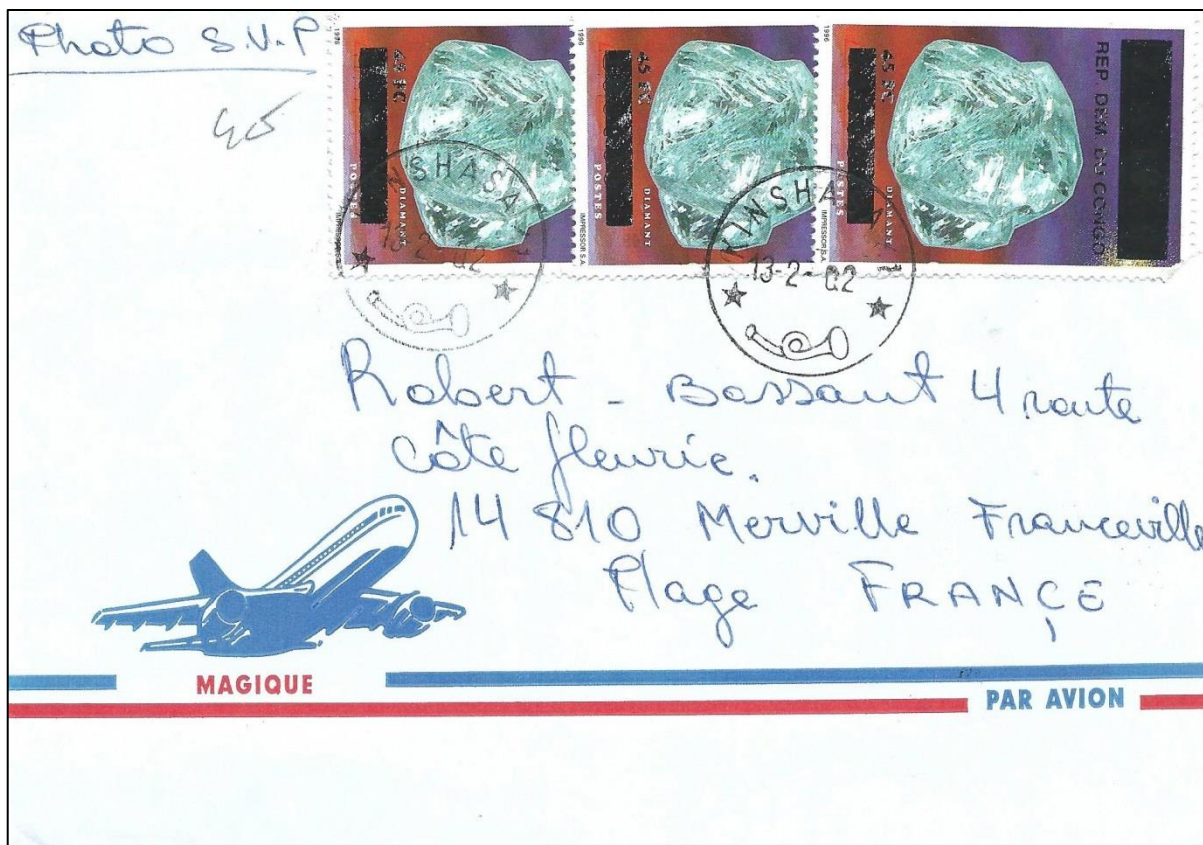 Photo S.V.P
45
1996
45 FC
POSTES
DIAMANT
IMPRESSOR S.A.
1996
45 FC
POSTES
DIAMANT
IMPRESSOR S.A.
1996
45 FC
POSTES
DIAMANT
IMPRESSOR S.A.
REP. DEM. DU CONGO
KINSHASA
13-2-02
KINSHA
13-2-02
Robert - Bossaut 4 route
Côte fleurie.
14 810 Merville Franceville
Plage FRANÇE
MAGIQUE
PAR AVION